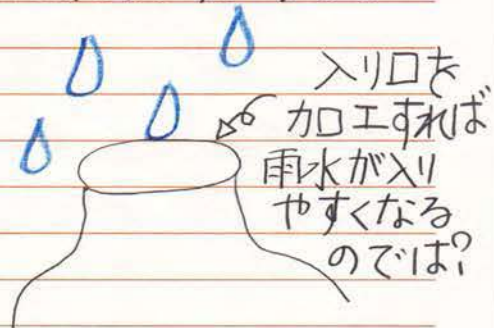 入り口を
加工すれば
雨水が入り
やすくなる
のでは?